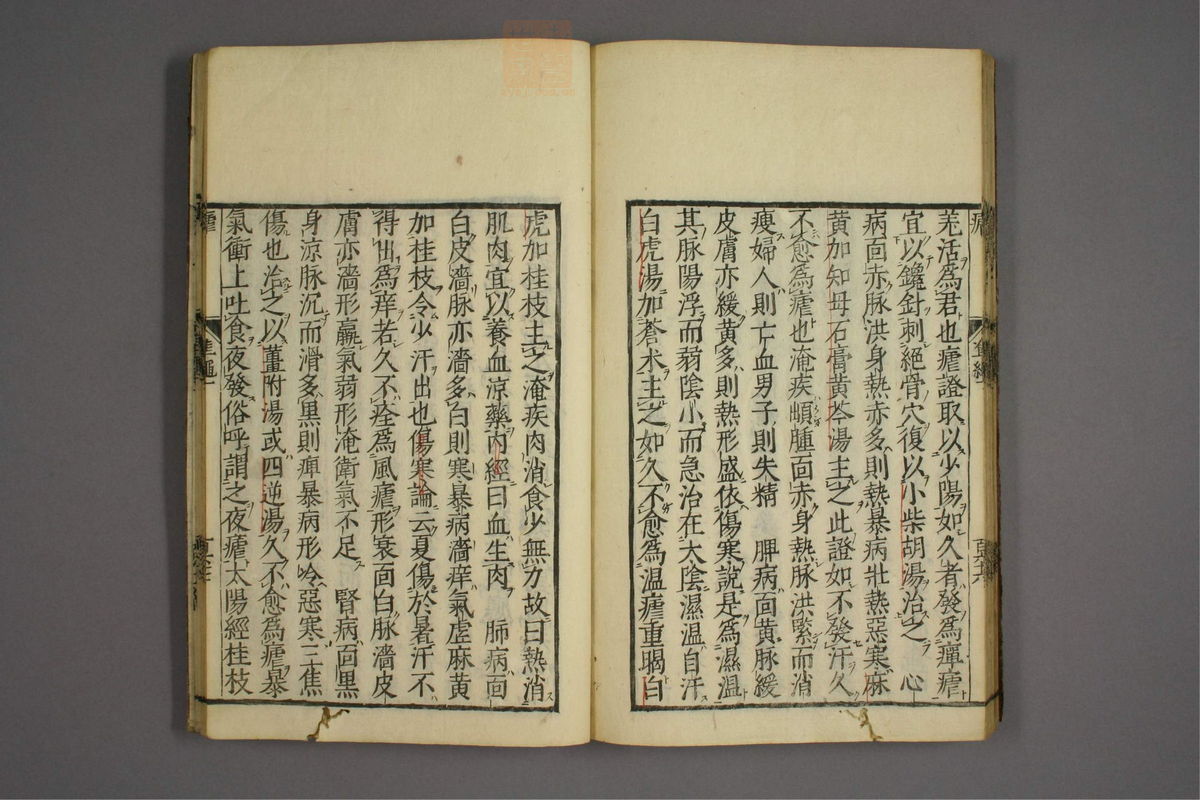 羌活爲君也瘧證取以少陽如久者發爲癉瘧
宜以鑱針刺絕骨穴復以小柴胡湯治之　心
病面赤脉洪身熱赤多則熱暴病壯熱惡寒麻
黃加知母石膏黃芩湯主之此證如不發汗久
不愈爲瘧也淹疾頔腫面赤身熱脉洪緊而消
瘦婦人則亡血男子則失精　脾病面黃脉緩
皮膚亦緩黃多則熱形盛依傷寒說是爲濕溫
其脉陽浮而弱陰小而急治在太陰濕溫自汗
白虎湯加蒼朮主之如久不愈爲溫瘧重暍白
虎加桂枝主之淹疾肉消食少無力故曰熱消
肌肉宜以養血涼藥內經曰血生肉　肺病面
白皮濇脉亦濇多白則寒暴病濇痒氣虛麻黃
加桂枝令少汗出也傷寒論云夏傷於暑汗不
得出爲痒若久不痊爲風瘧形衰面白脉濇皮
膚亦濇形羸氣弱形淹衛氣不足　腎病面黑
身涼脉沉而滑多黑則痺暴病形冷惡寒三焦
傷也治之以薑附湯或四逆湯久不愈爲瘧暴
氣衝上吐食夜發俗呼謂之夜瘧太陽經桂枝